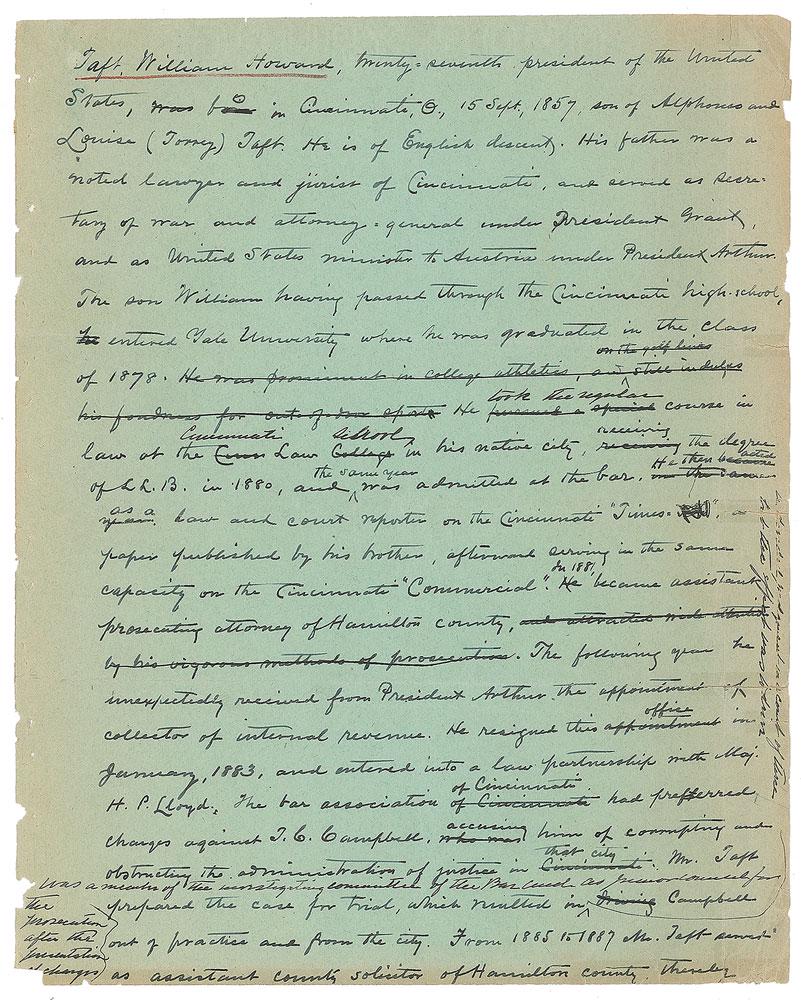 Taft, William Howard, twenty-seventh president of the United
States, was b in Cincinnati, O., 15 Sept, 1857, son of Alphonso and
Louise (Torrey) Taft. He is of English descent. His father was a
noted lawyer and jurist of Cincinnati, and served as secre-
tary of war and attorney-general under President Grant,
and as United States minister to Austria under President Arthur.
The son William having passed through the Cincinnati high-school,
he entered Yale University where he was graduated in the class
on the golf links
of 1878. He was prominent in college athletics, and still indulges
took the regular
his fondness for out-of-door sports He pursued a special course in
Cincinnati School receiving
law at the Cinn Law College in his native city, receiving the degree
the same year He then became acted
of LL.B. in 1880, and was admitted at the bar. in the same
as a
year. law and court reporter on the Cincinnati "Times-", a
paper published by his brother, afterward serving in the same
In 1881
capacity on the Cincinnati "Commercial". He became assistant
prosecuting attorney of Hamilton county, and attracted wide attention
by his vigorous methods of prosecution. The following year he
unexpectedly received from President Arthur the appointment of
office
collector of internal revenue. He resigned this appointment in
January, 1883, and entered into a law partnership with Maj.
of Cincinnati
H. P. Lloyd. The bar association of Cincinnati had prefferred
accusing
charges against T. C. Campbell, who was him of corrupting and
that city
obstructing the administration of justice in Cincinnati. Mr. Taft
was a member of the investigating committee of the Bar and as junior counsel for
the
prosecution
after the
presentation
of charges
prepared the case for trial, which resulted in driving Campbell
out of practice and from the city. From 1885 to 1887 Mr. Taft served
as assistant county solicitor of Hamilton county, thereby